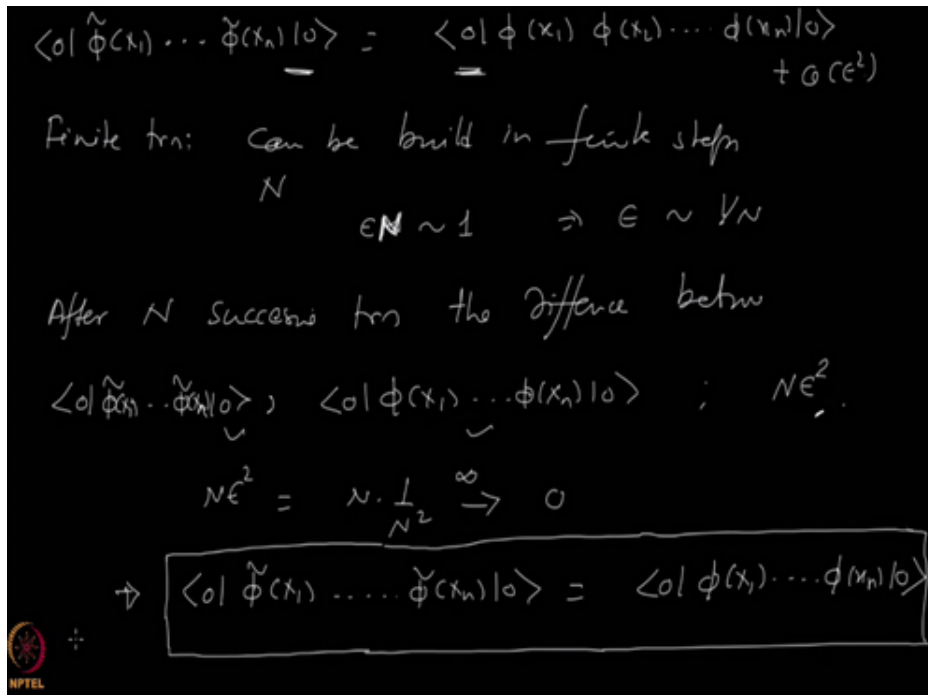 <0| φ̃(x₁) ... φ̃(xₙ)|0> = <0| φ(x₁) φ(x₂) .... φ(xₙ)|0>
+ O(ε²)
Finite trn: Can be build in finite steps
N
εN ~ 1 ⇒ ε ~ 1/N
After N successive trn the Diffence betwn
<0| φ̃(x₁) .. φ̃(xₙ)|0> , <0| φ(x₁) ... φ(xₙ)|0> ; Nε² .
Nε² = N. 1/N² ∞→ 0
→ <0| φ̃(x₁) ..... φ̃(xₙ)|0> = <0| φ(x₁) .... φ(xₙ)|0>
NPTEL